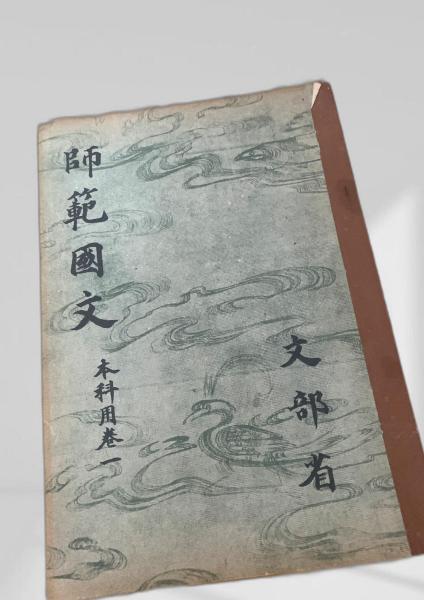 師範國文
本科用卷一
文部省